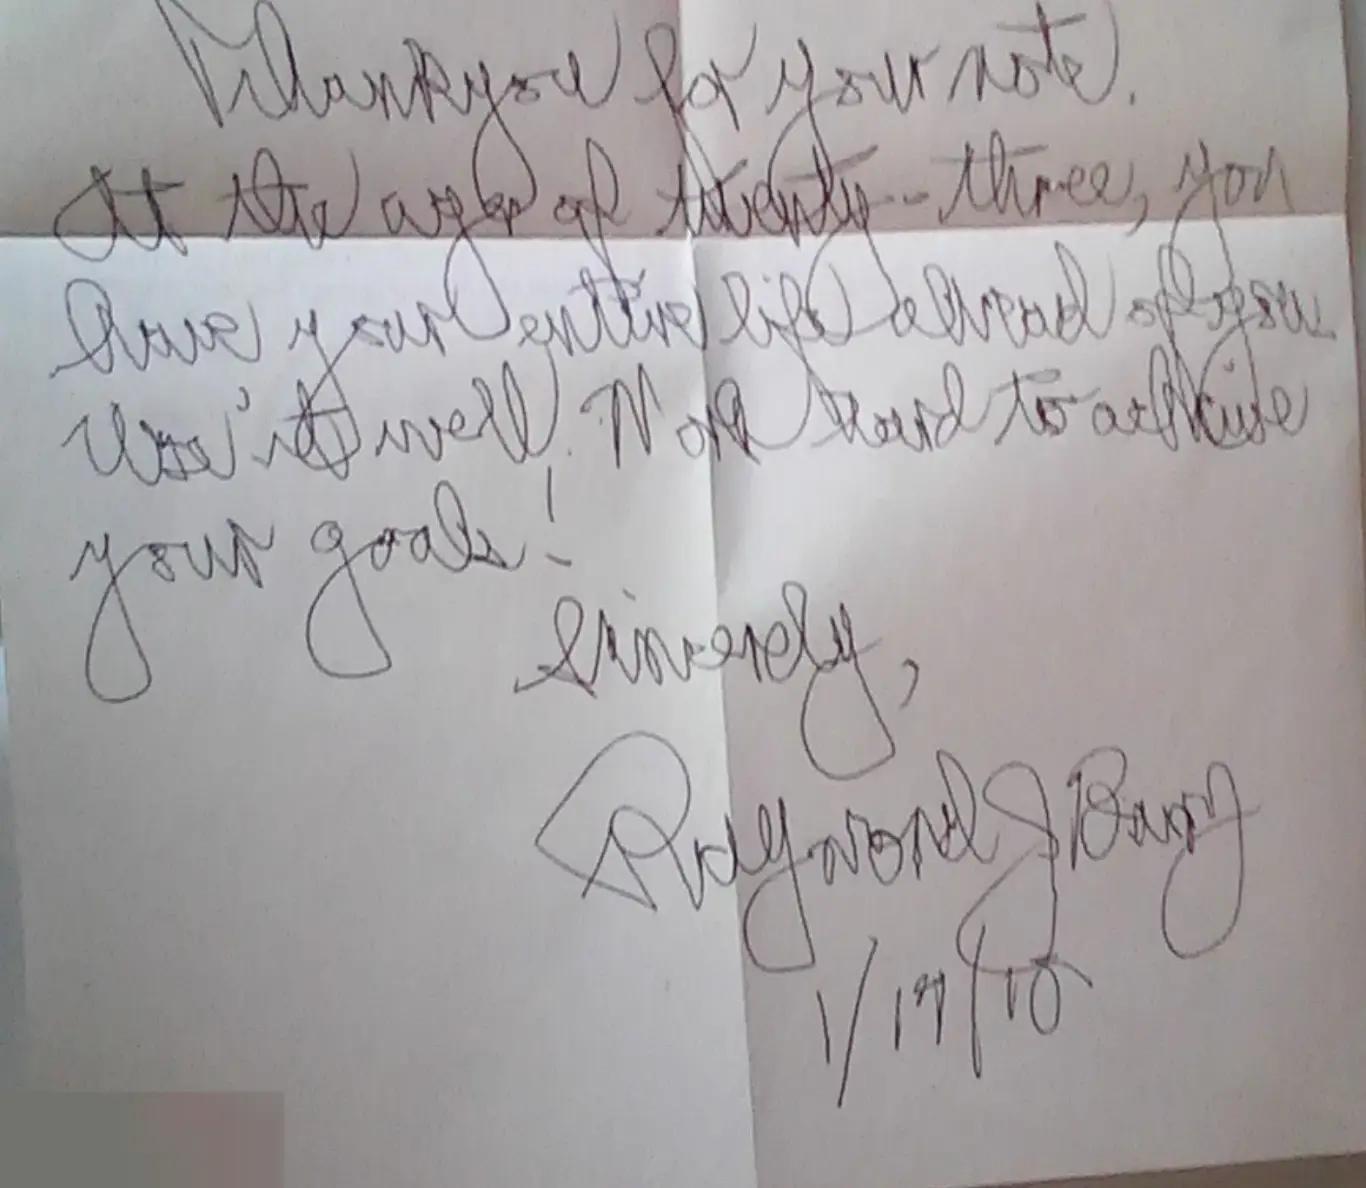 Thank you for your note.
At the age of twenty-three, you
have your entire life ahead of you.
Use it well. Work hard to achieve
your goals!
Sincerely,
Raymond J Barry
1/17/10